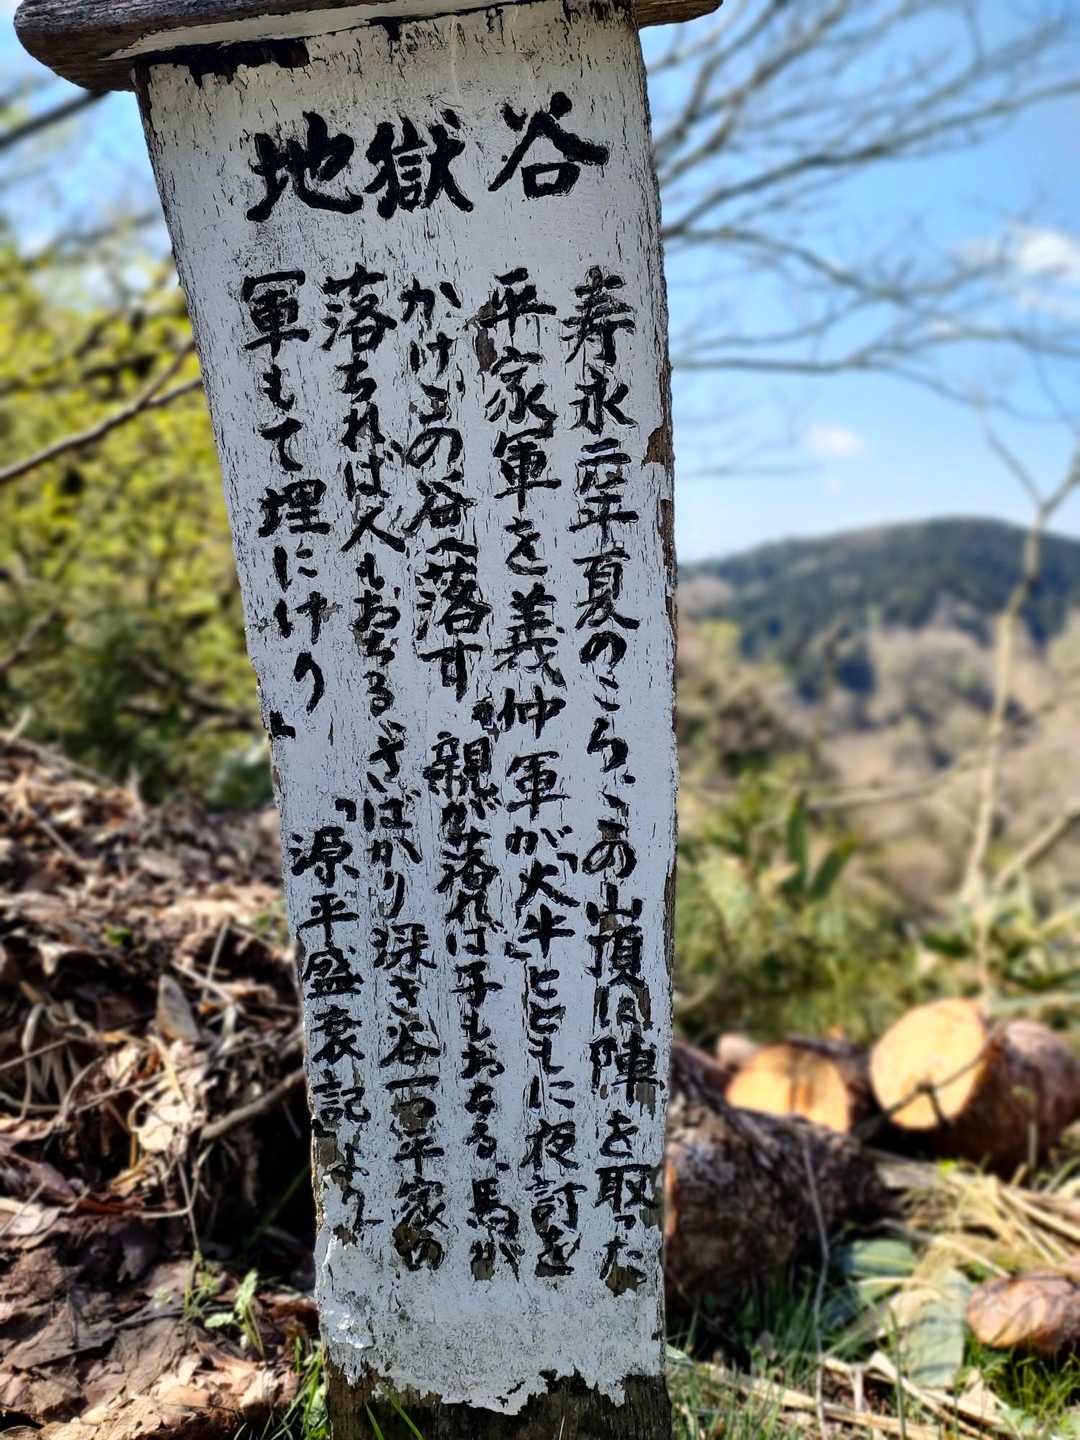 地獄谷
寿永二年夏のころ、この山頂に陣を取った
平家軍を義仲軍が「火牛」とともに夜討を
かけこの谷へ落す「親が落れば子もおちる、馬が
落ちれば人もおちる、さばかり深き谷一つ平家の
軍もて埋にけり」
「源平盛衰記」より